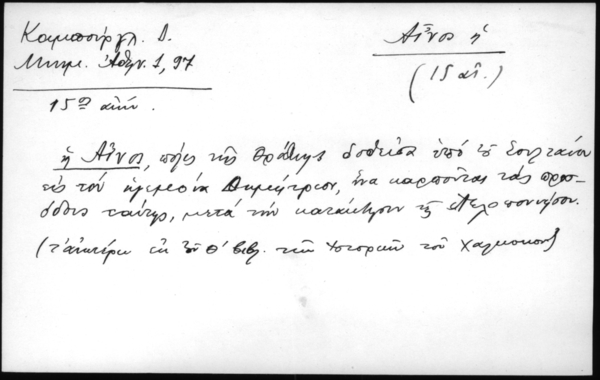 Καμπούρογλ. Δ.
Μνημ. Ἀθην. 1, 97
15ος αἰών.
Αἶνος ἡ
(15 αἰ.)
ἡ Αἶνος, πόλις τῆς Θράκης δοθεῖσα ὑπό τοῦ Σουλτάνου
εἰς τόν ἡγεμόνα Δημήτριον, ἵνα καρποῦται τάς προσ-
όδους ταύτης, μετά τήν κατάκτησιν τῆς Πελοποννήσου.
(τ' ἀνωτέρω ἐκ τοῦ Θ' βιβλ. τῶν Ἱστοριῶν τοῦ Χαλκοκον.)